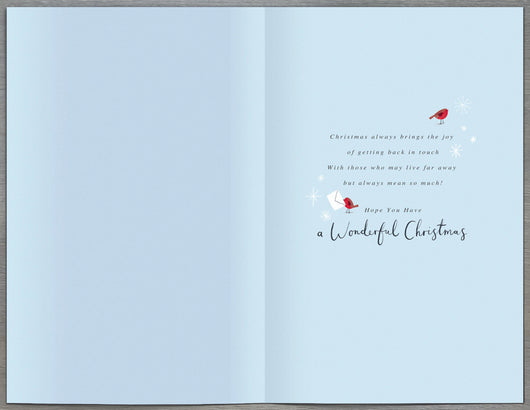 Christmas always brings the joy
of getting back in touch
With those who may live far away
but always mean so much!
Hope You Have
a Wonderful Christmas